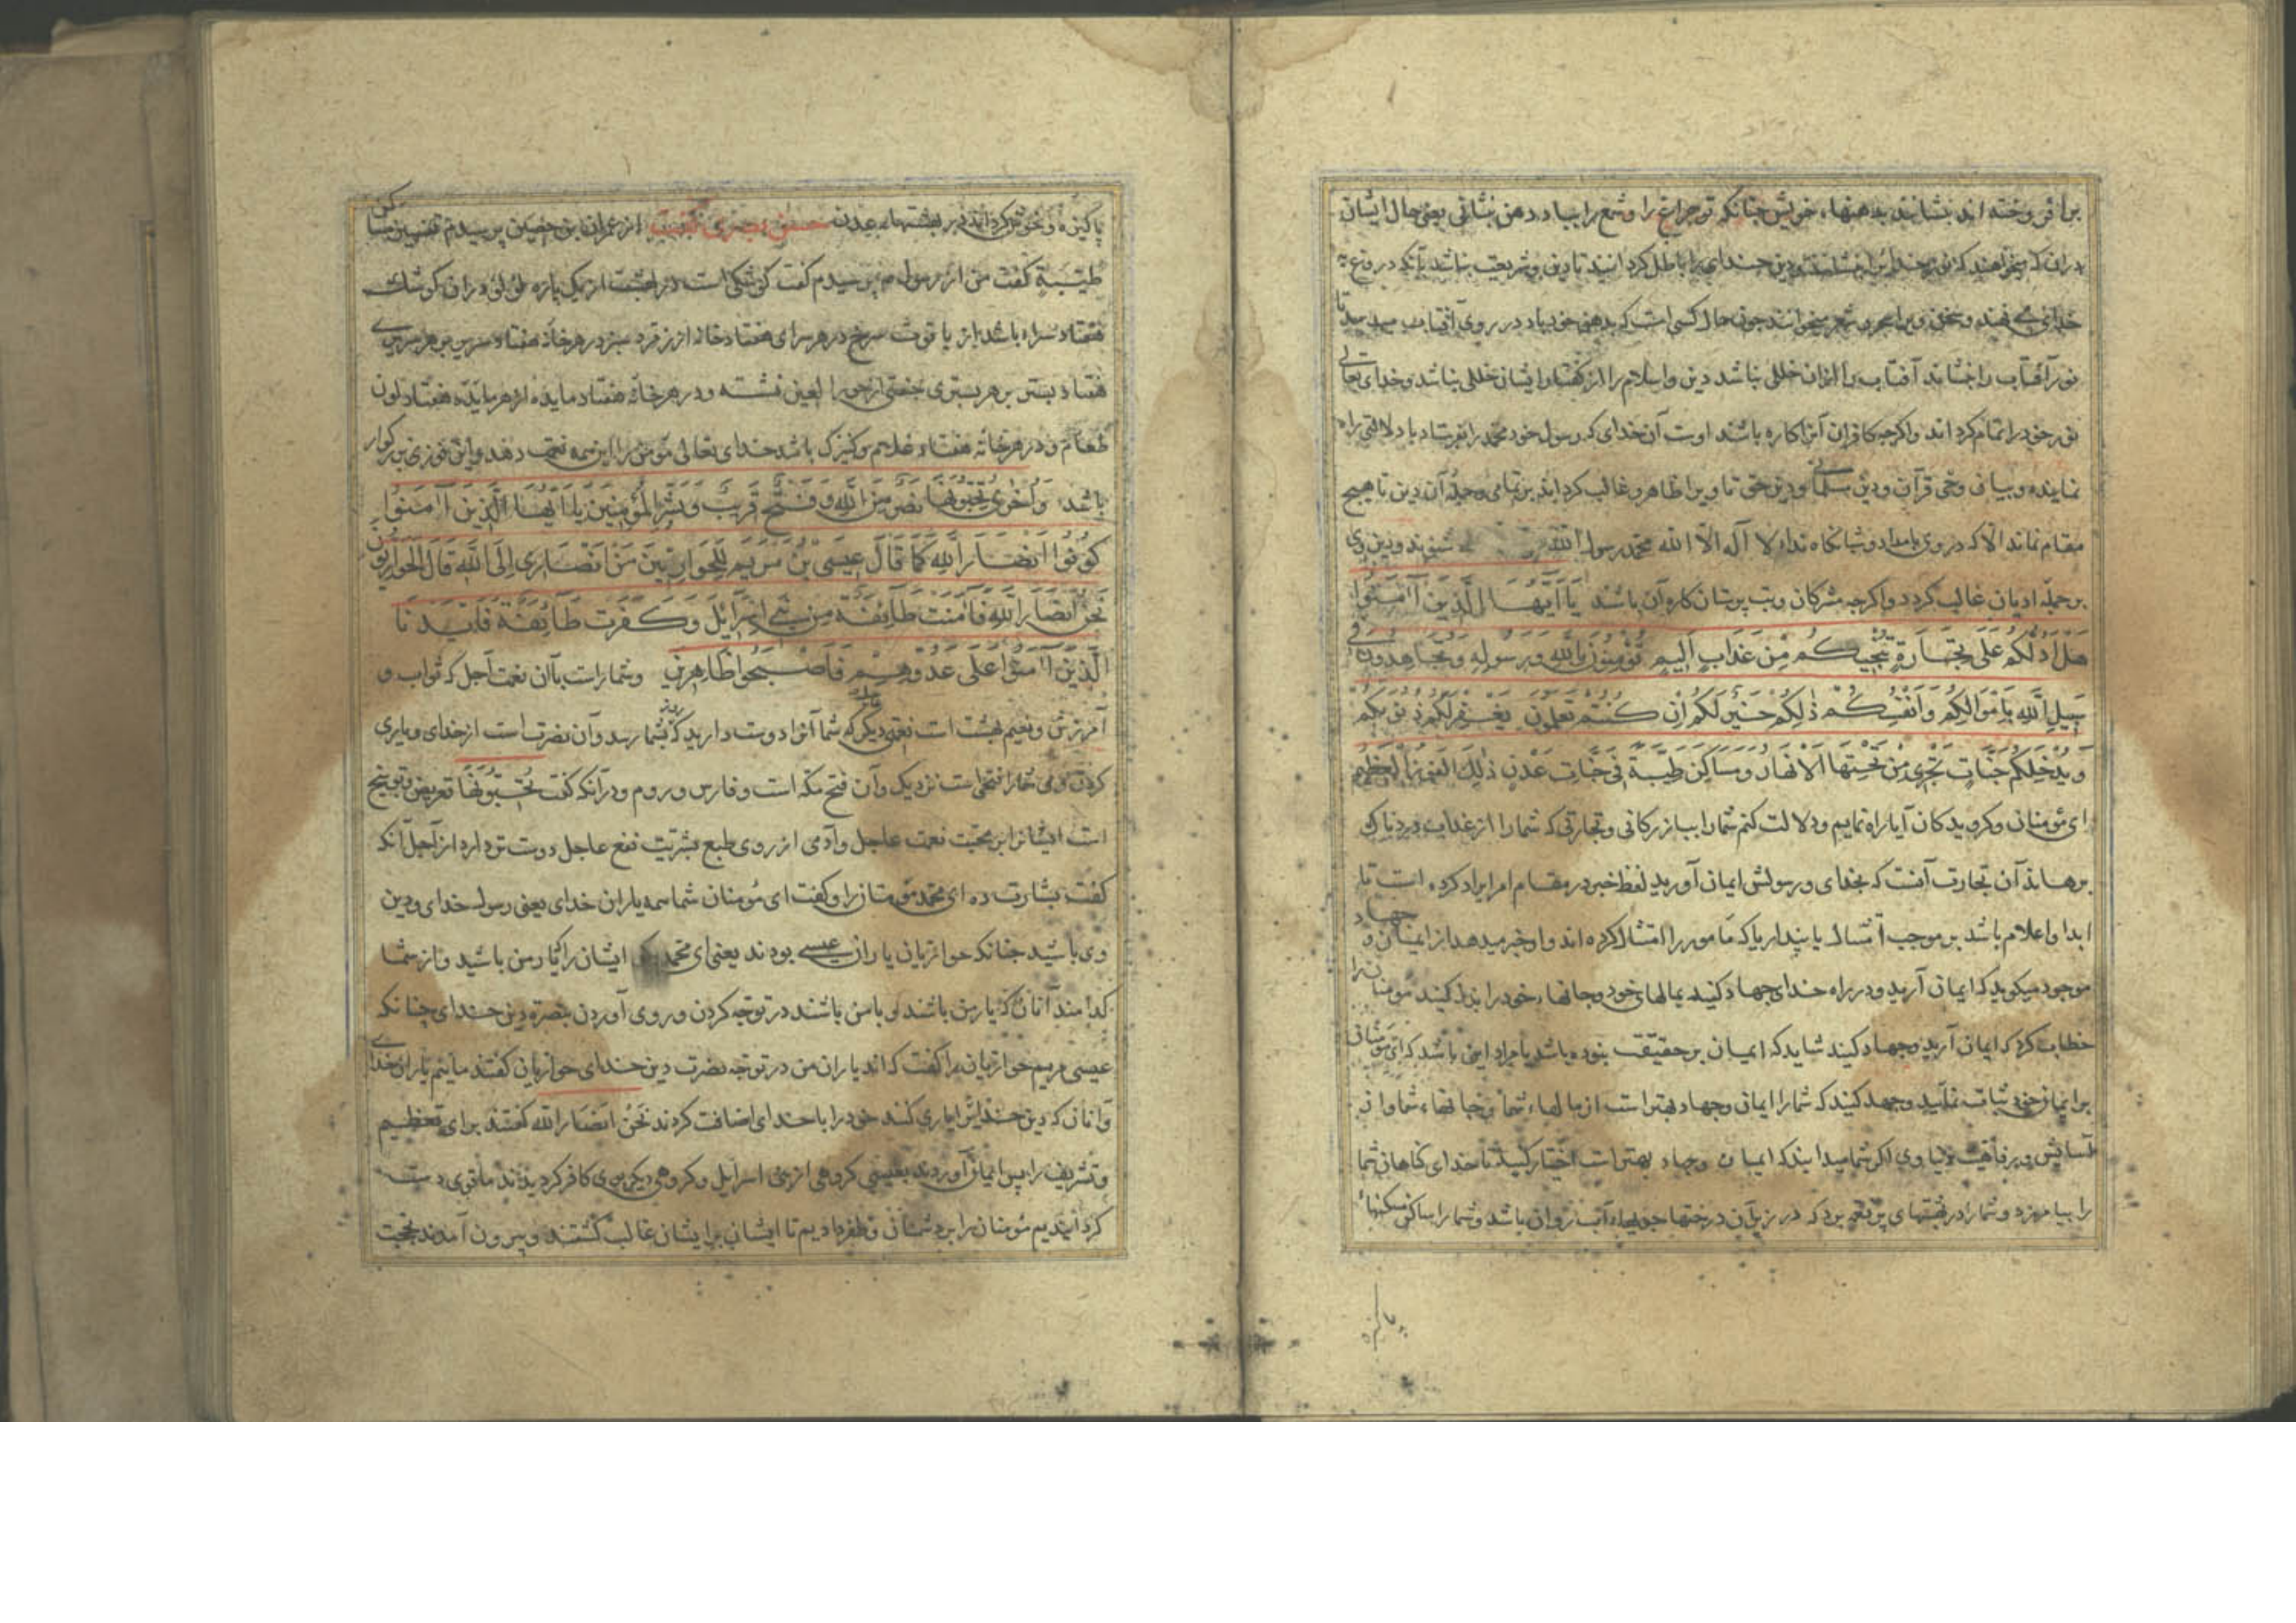 برافروخته اند بنشانند بدهنهاء خویش چنانکه تو چراغ را و شمع را بباد دهن بنشانی یعنی حال ایشان
خدای می نهند و سحر و برا سحر و شعر میخوانند چون حال کسی است که بدهن خود باد در روی آفتاب میدمد تا
نور آفتاب را بنشاند آفتاب را ازان خللی نباشد دین و اسلام را از کفتار ایشان خللی نباشد و خدای تعالی
نور خود را تمام کرداند واکرچه کافران آنرا کاره باشند اوست آن خدای که رسول خود محمد را بفرستاد با دلالتی راه
نماینده و بیان وحی قرآن و دین مسلمانی و دین حق تا ویرا ظاهر و غالب کرداند بر تمامی و جملۀ آن دین تا هیچ
مقام نماند الا که در وی بامداد و شبانکاه نداء لا آله الا الله محمد رسول الله می شنوند و دین وی
بر جمله ادیان غالب کردد واکرچه مشرکان و بت پرستان کاره آن باشند یَا اَیُّهَا الَّذِینَ آمَنُوا
هَلْ اَدُلُّکُمْ عَلَی تِجَارَةٍ تُنْجِیکُمْ مِنْ عَذَابٍ اَلِیمٍ تُؤْمِنُونَ بِاللهِ وَرَسُولِهِ وَتُجَاهِدُونَ فِی
سَبِیلِ اللهِ بِاَمْوَالِکُمْ وَاَنْفُسِکُمْ ذَلِکُمْ خَیْرٌ لَکُمْ اِنْ کُنْتُمْ تَعْلَمُونَ یَغْفِرْ لَکُمْ ذُنُوبَکُمْ
وَیُدْخِلْکُمْ جَنَّاتٍ تَجْرِی مِنْ تَحْتِهَا الْاَنْهَارُ وَمَسَاکِنَ طَیِّبَةً فِی جَنَّاتِ عَدْنٍ ذَلِکَ الْفَوْزُ الْعَظِیمُ
ای مؤمنان و کرویدکان آیا راه نمایم و دلالت کنم شما را ببازرکانی و تجارتی که شما را از عذاب دردناک
برهاند آن تجارت آنست که بخدای و رسولش ایمان آورید لفظ خبر در مقام امر ایراد کرده است تا
ابدا و اعلام باشد بر موجب امتثال یا پنداریا که مامور را امتثال کرده اند و او خبر میدهد از ایمان و جهاد
موجود میکوید که ایمان آرید و در راه خدای جهاد کنید بمالهای خود و جانهاء خود را بذل کنید مومنان را
خطاب کرد که ایمان آرید و جهاد کنید شاید که ایمان بر حقیقت بنوده باشد یا مراد این باشد که ای مؤمنان
بر ایمان خود ثبات نمایید و جهد کنید که شما را ایمان و جهاد بهتر است از مالهاء شما و جانهاء شما و از
آسایش و رفاهیت دنیاوی اکر شما میدانید که ایمان و جهاد بهتر است اختیار کنید تا خدای کناهان شما
را بیامرزد و شما را در بهشتهای پر نعیم برد که در زیر آن درختها جویهاء آب روان باشد و شما را ساکن مسکنهاء
پاکیزه
پاکیزه و خوش کرداند در بهشتهاء عدن حسن بصری کفت از عمران بن حصین پرسیدم تفسیر مساکن
طَیِّبَةً کفت من از رسول پرسیدم کفت کوشکی است در بهشت از یک پاره لؤلؤ در ان کوشک
هفتاد سراء باشد از یاقوت سرخ در هر سرای هفتاد خانه از زمرد سبز در هر خانه هفتاد سریر بر هر سریری
هفتاد بستر بر هر بستری جفتی از حورا لعین نشسته و در هر خانه هفتاد مایده از هر مایده هفتاد لون
طعام و در هر خانه هفتاد غلام و کنیزک باشد خدای تعالی مؤمن را این همه نعمت دهد و این فوزی بزرکوار
باشد وَاُخْرَی تُحِبُّونَهَا نَصْرٌ مِنَ اللهِ وَفَتْحٌ قَرِیبٌ وَبَشِّرِ الْمُؤْمِنِینَ یَا اَیُّهَا الَّذِینَ آمَنُوا
کُونُوا اَنْصَارَ اللهِ کَمَا قَالَ عِیسَی بْنُ مَرْیَمَ لِلْحَوَارِیِّینَ مَنْ اَنْصَارِی اِلَی اللهِ قَالَ الْحَوَارِیُّونَ
نَحْنُ اَنْصَارُ اللهِ فَآمَنَتْ طَائِفَةٌ مِنْ بَنِی اِسْرَائِیلَ وَکَفَرَتْ طَائِفَةٌ فَاَیَّدْنَا
الَّذِینَ آمَنُوا عَلَی عَدُوِّهِمْ فَاَصْبَحُوا ظَاهِرِینَ و شما راست باآن نعمت آجل که ثواب و
آمرزش و نعیم بهشت است نعمتی دیکر عاجل که شما آنرا دوست دارید که زود بشما رسد و آن نصرت است از خدای و یاری
کردن وی شما را فتحی است نزدیک و آن فتح مکه است و فارس و روم و در آنکه کفت تُحِبُّونَهَا تعریض و توبیخ
است ایشانرا بر محبت نعمت عاجل و آدمی از روی طبع بشریت نفع عاجل دوست تر دارد از آجل آنکه
کفت بشارت ده ای محمد مؤمنان را و کفت ای مؤمنان شما همه یاران خدای یعنی رسول خدای و دین
وی باشید چنانکه حواریان یاران عیسی بودند یعنی ای محمد بکو ایشان را که یار من باشید و از شما
کدامند آنان که یار من باشند و با من باشند در توجه کردن و روی آوردن بنصرة دین خدای چنانکه
عیسی مریم حواریان را کفت که اند یاران من در توجه نصرت دین خدای حواریان کفتند ماییم یاران خدای
و آنان که دین خدایرا یاری کنند خود را با خدای اضافت کردند نَحْنُ اَنْصَارُ الله کفتند برای تعظیم
و تشریف را پس ایمان آوردند بعیسی کروهی از بنی اسرائیل و کروهی دیکر بوی کافر کردیدند ما قوی دست
کردانیدیم مؤمنان را بر دشمنان و ظفر دادیم تا ایشان بر ایشان غالب کشتند و بیرون آمدند بحجت